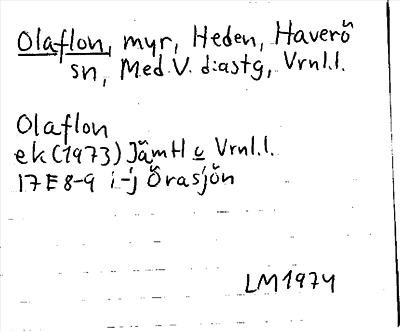 Olaflon, myr, Heden, Haverö
sn, Med.V. diastg, Vrnl.l.
Olaflon
ek (1973) Jämtl c Vrnl.l.
17E 8-9 i-j Örasjön
LM1974